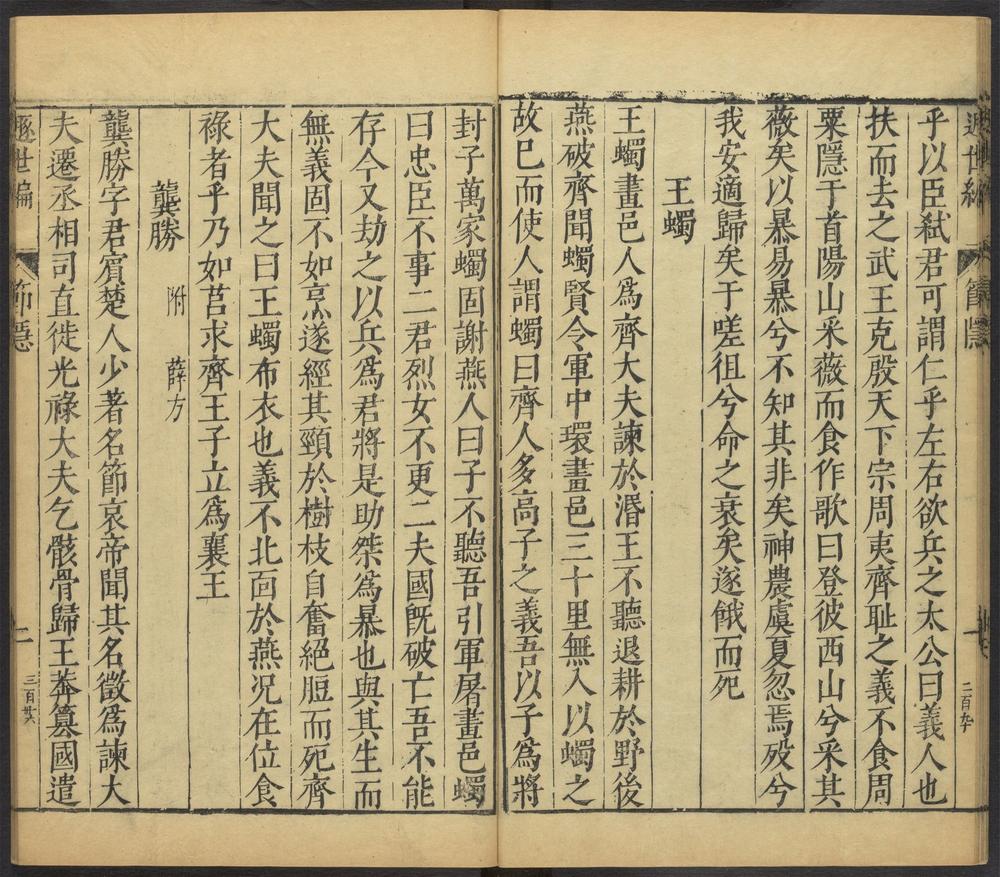 遯世編
節隱
一
二百九十
乎以臣弑君可謂仁乎左右欲兵之太公曰義人也
扶而去之武王克殷天下宗周夷齊耻之義不食周
粟隱于首陽山采薇而食作歌曰登彼西山兮采其
薇矣以暴易暴兮不知其非矣神農虞夏忽焉殁兮
我安適歸矣于嗟徂兮命之衰矣遂餓而死
王蠋
王蠋畫邑人爲齊大夫諫於湣王不聽退耕於野後
燕破齊聞蠋賢令軍中環畫邑三十里無入以蠋之
故已而使人謂蠋曰齊人多高子之義吾以子爲將
封子萬家蠋固謝燕人曰子不聽吾引軍屠畫邑蠋
曰忠臣不事二君烈女不更二夫國旣破亡吾不能
存今又劫之以兵爲君將是助桀爲暴也與其生而
無義固不如烹遂經其頸於樹枝自奮絕脰而死齊
大夫聞之曰王蠋布衣也義不北面於燕况在位食
祿者乎乃如莒求齊王子立爲襄王
龔勝 附 薛方
龔勝字君賓楚人少著名節哀帝聞其名徵爲諫大
夫遷丞相司直徙光祿大夫乞骸骨歸王莽篡國遣
遯世編
節隱
二
三百廿六